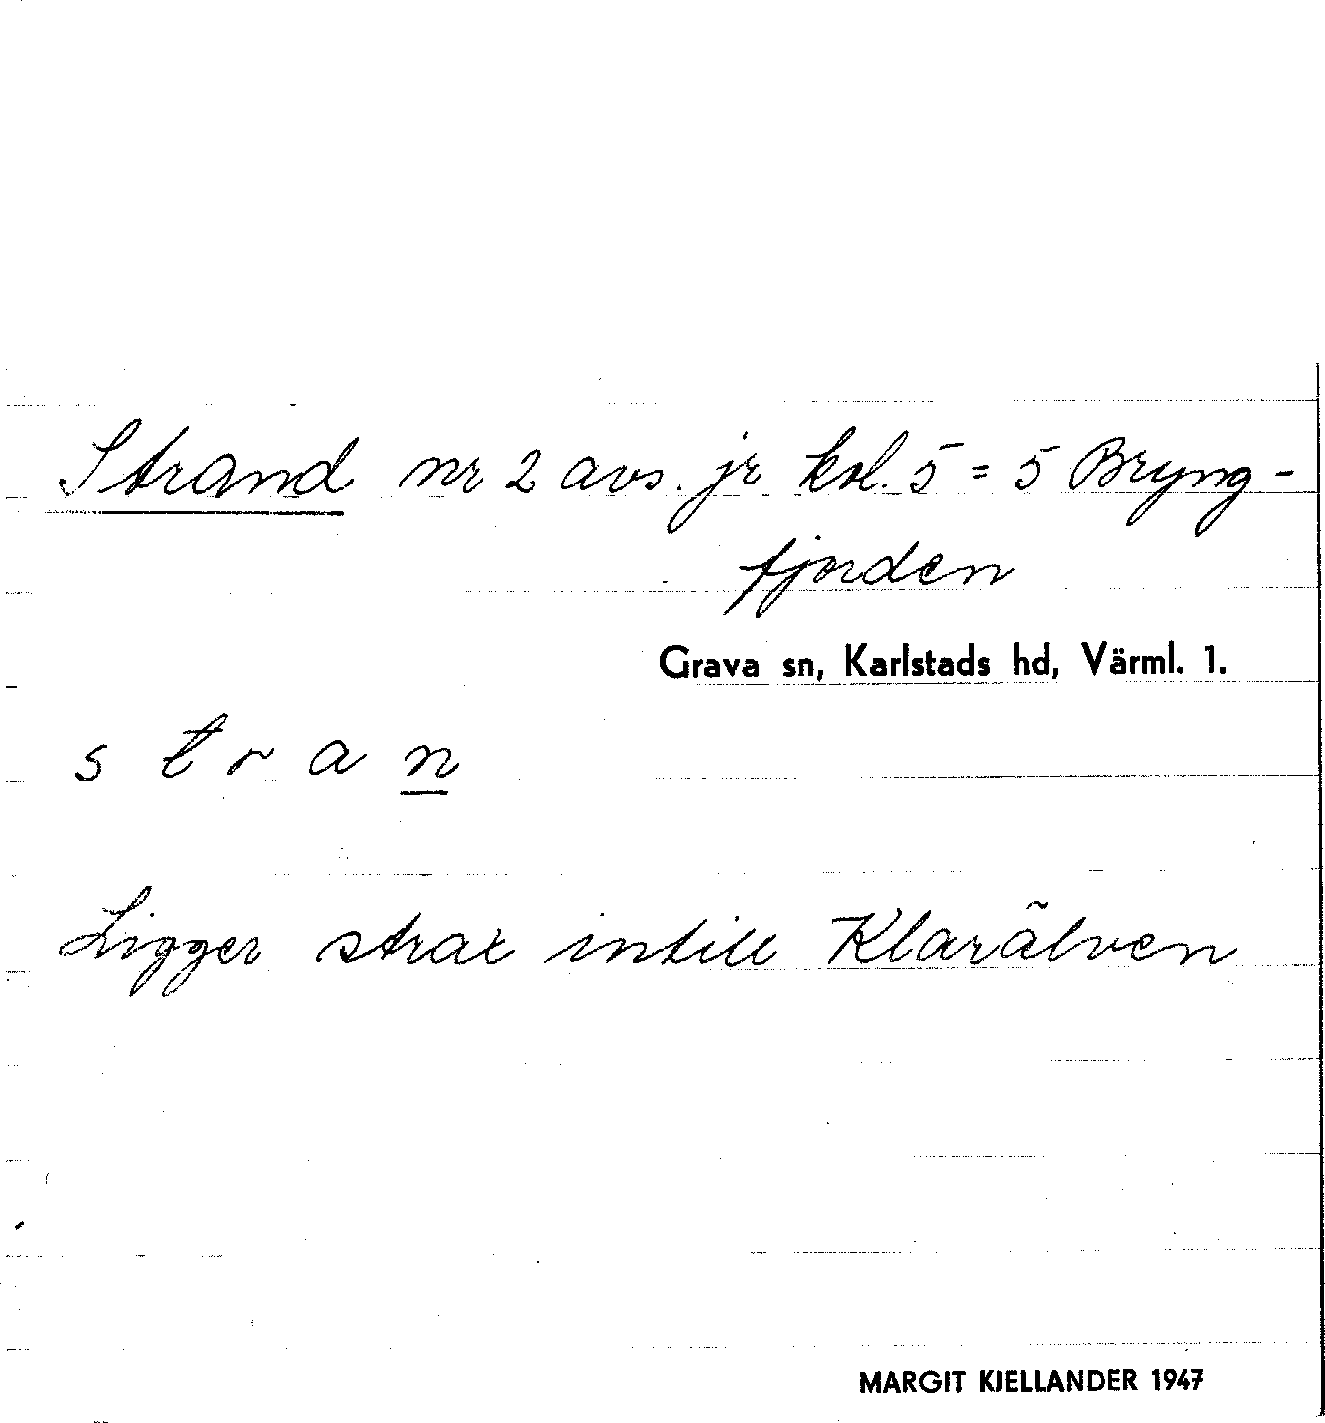 Strand nr 2 avs. jr kol. 5 = 5 Bryng-
fjorden
Grava sn, Karlstads hd, Värml. 1.
s t r a n
Ligger strax intill Klarälven
MARGIT KJELLANDER 1947